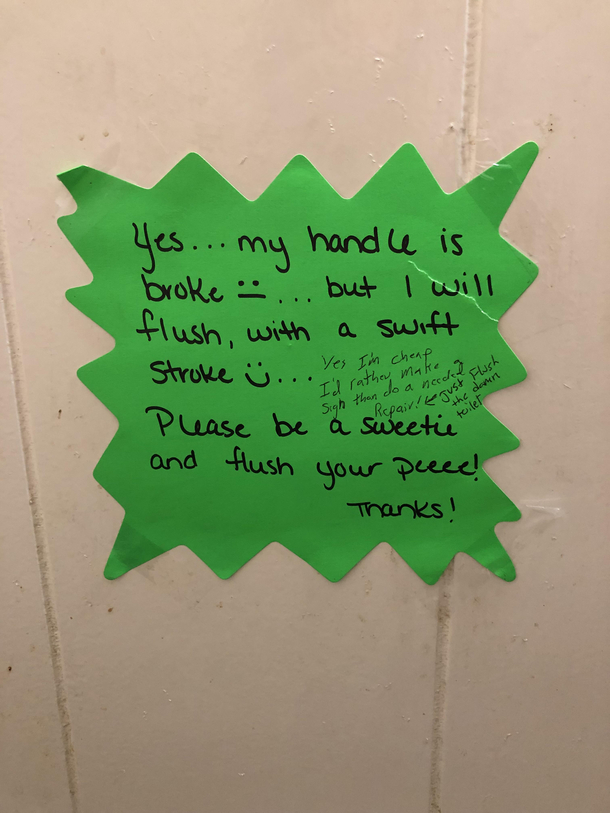 Yes... my handle is
broke :| ... but I will
flush, with a swift
stroke :) ...
Yes I'm cheap
I'd rather make a
sign than do a needed
Repair! ← Just Flush
the damn
toilet
Please be a sweetie
and flush your peeee!
Thanks!